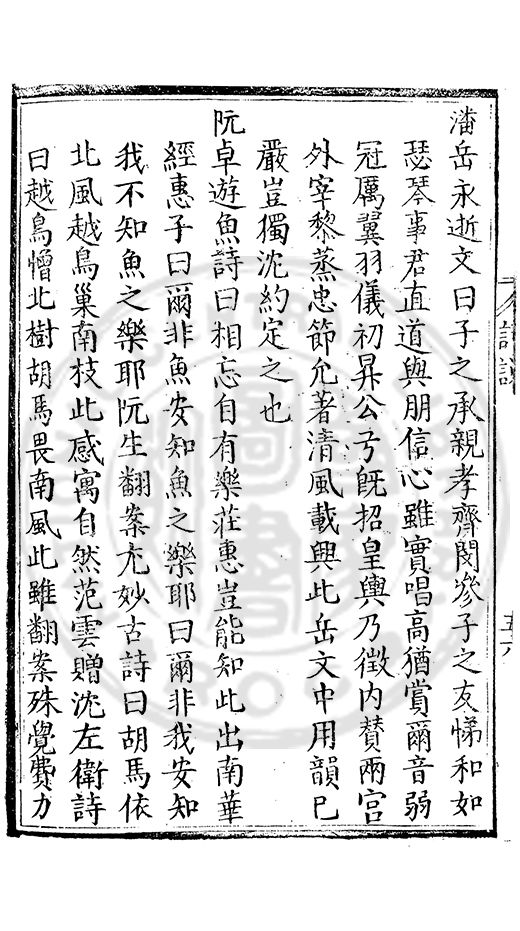 潘岳永逝文曰子之承親孝齊閔參子之友悌和如
瑟琴事君直道與朋信心雖實唱高猶賞爾音弱
冠厲翼羽儀初昇公弓旣招皇輿乃徵内贊兩宮
外宰黎蒸忠節允著清風載興此岳文中用韻已
嚴豈獨沈約定之也
阮卓遊魚詩曰相忘自有樂莊惠豈能知此出南華
經惠子曰爾非魚安知魚之樂耶曰爾非我安知
我不知魚之樂耶阮生翻案尤妙古詩曰胡馬依
北風越鳥巢南枝此感寓自然范雲贈沈左衛詩
曰越鳥憎北樹胡馬畏南風此雖翻案殊覺費力